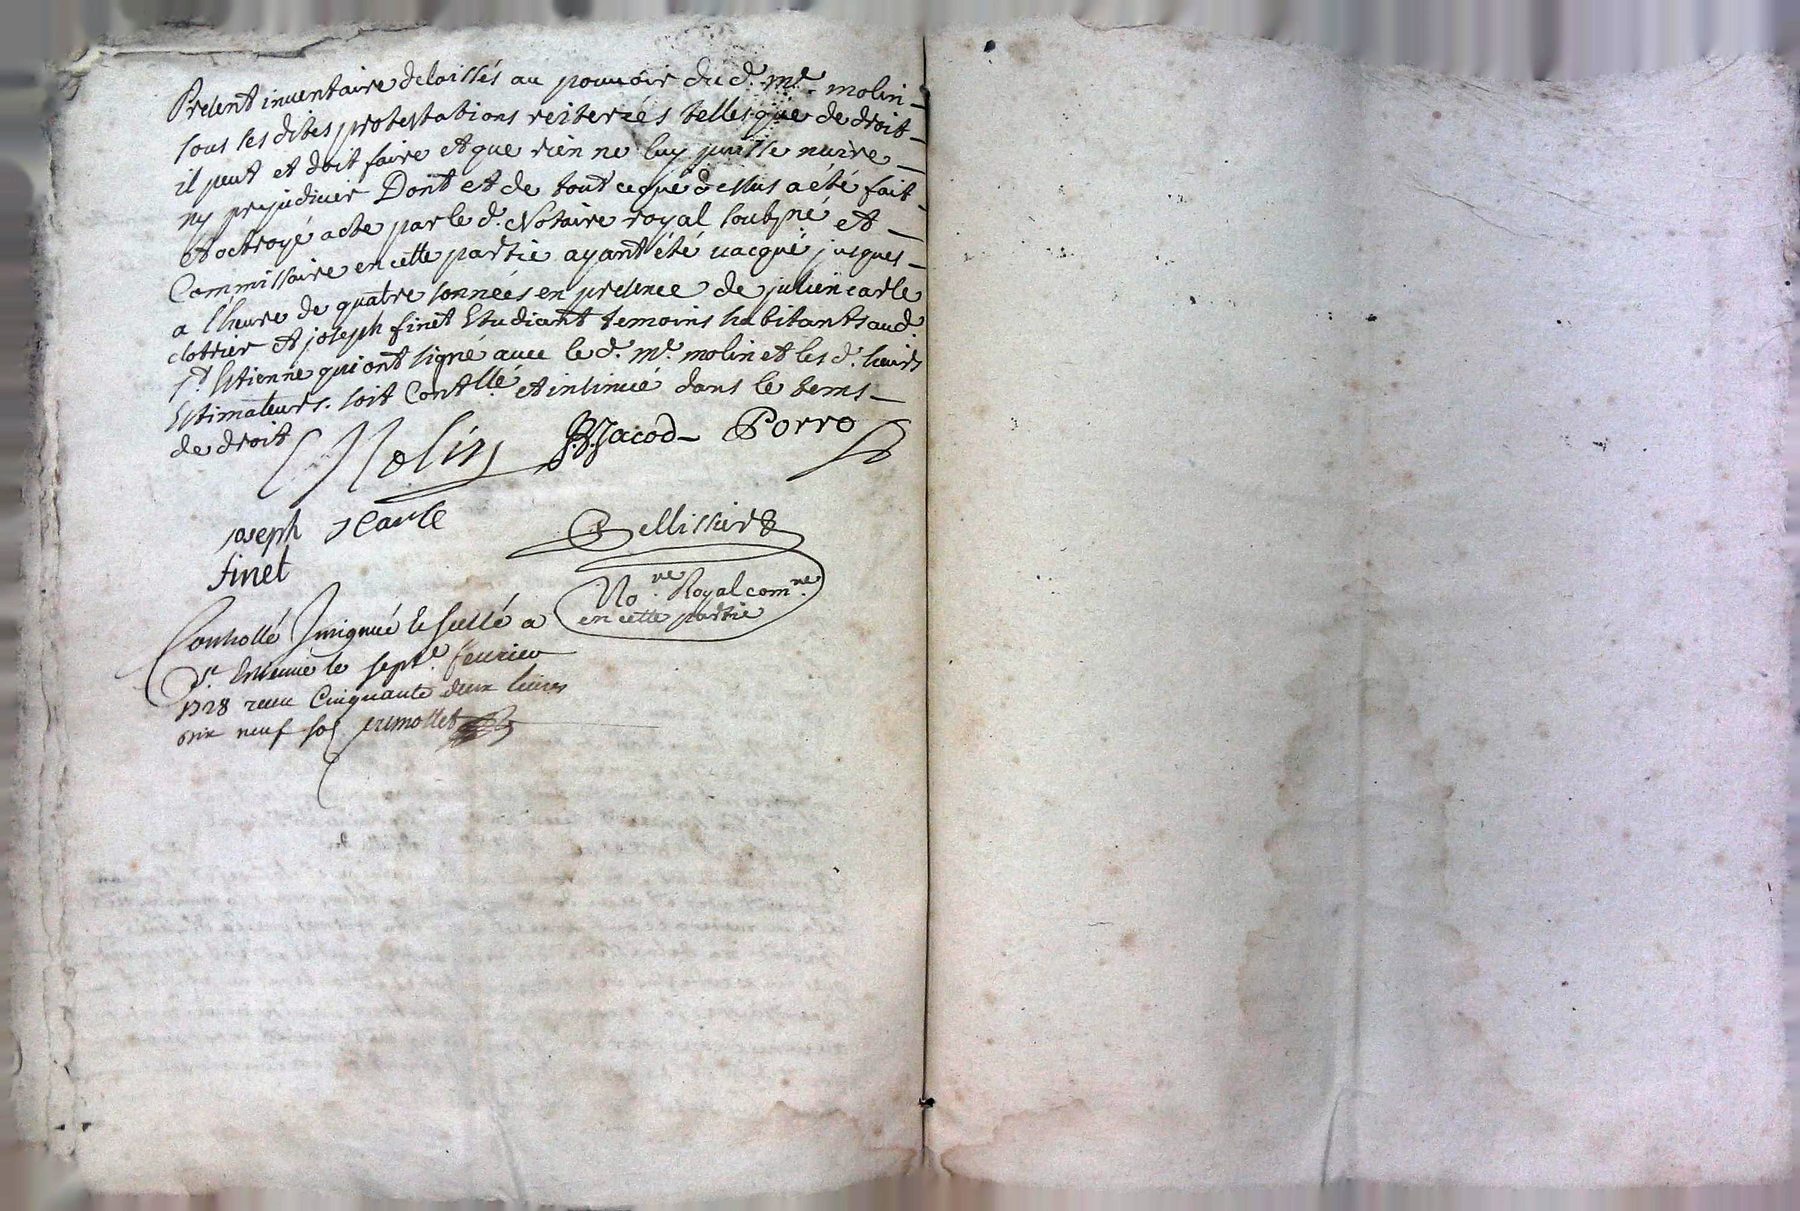 Present inventaire delaissés au pouvoir du d. me. molin
sous les dites protestations reiterees telles que de droit
il peut et doit faire et que rien ne luy puisse nuire
ny prejudicier Dont et de tout ce que dessus a été fait
et octroyé acte par le d. Notaire royal soubsné et
Commissaire en cette partie ayant été vacqué jusques
a l'heure de quatre sonnées en presence de julien carle
clottrier et joseph finet Etudiant temoins habitants aud.
st. Estienne qui ont signé avec le d. me. molin et les d. sieurs
Estimateurs. soit Contllé. et insinué dans le tems
de droit
Molin JB Jacod Porro
joseph J Carle
finet
Pellissier
Nore. Royal comre.
en cette partie
Controllé Insignué et scellé a
St. Estienne le septe. fevrier
1728 receu Cinquante deux livres
dix neuf sol